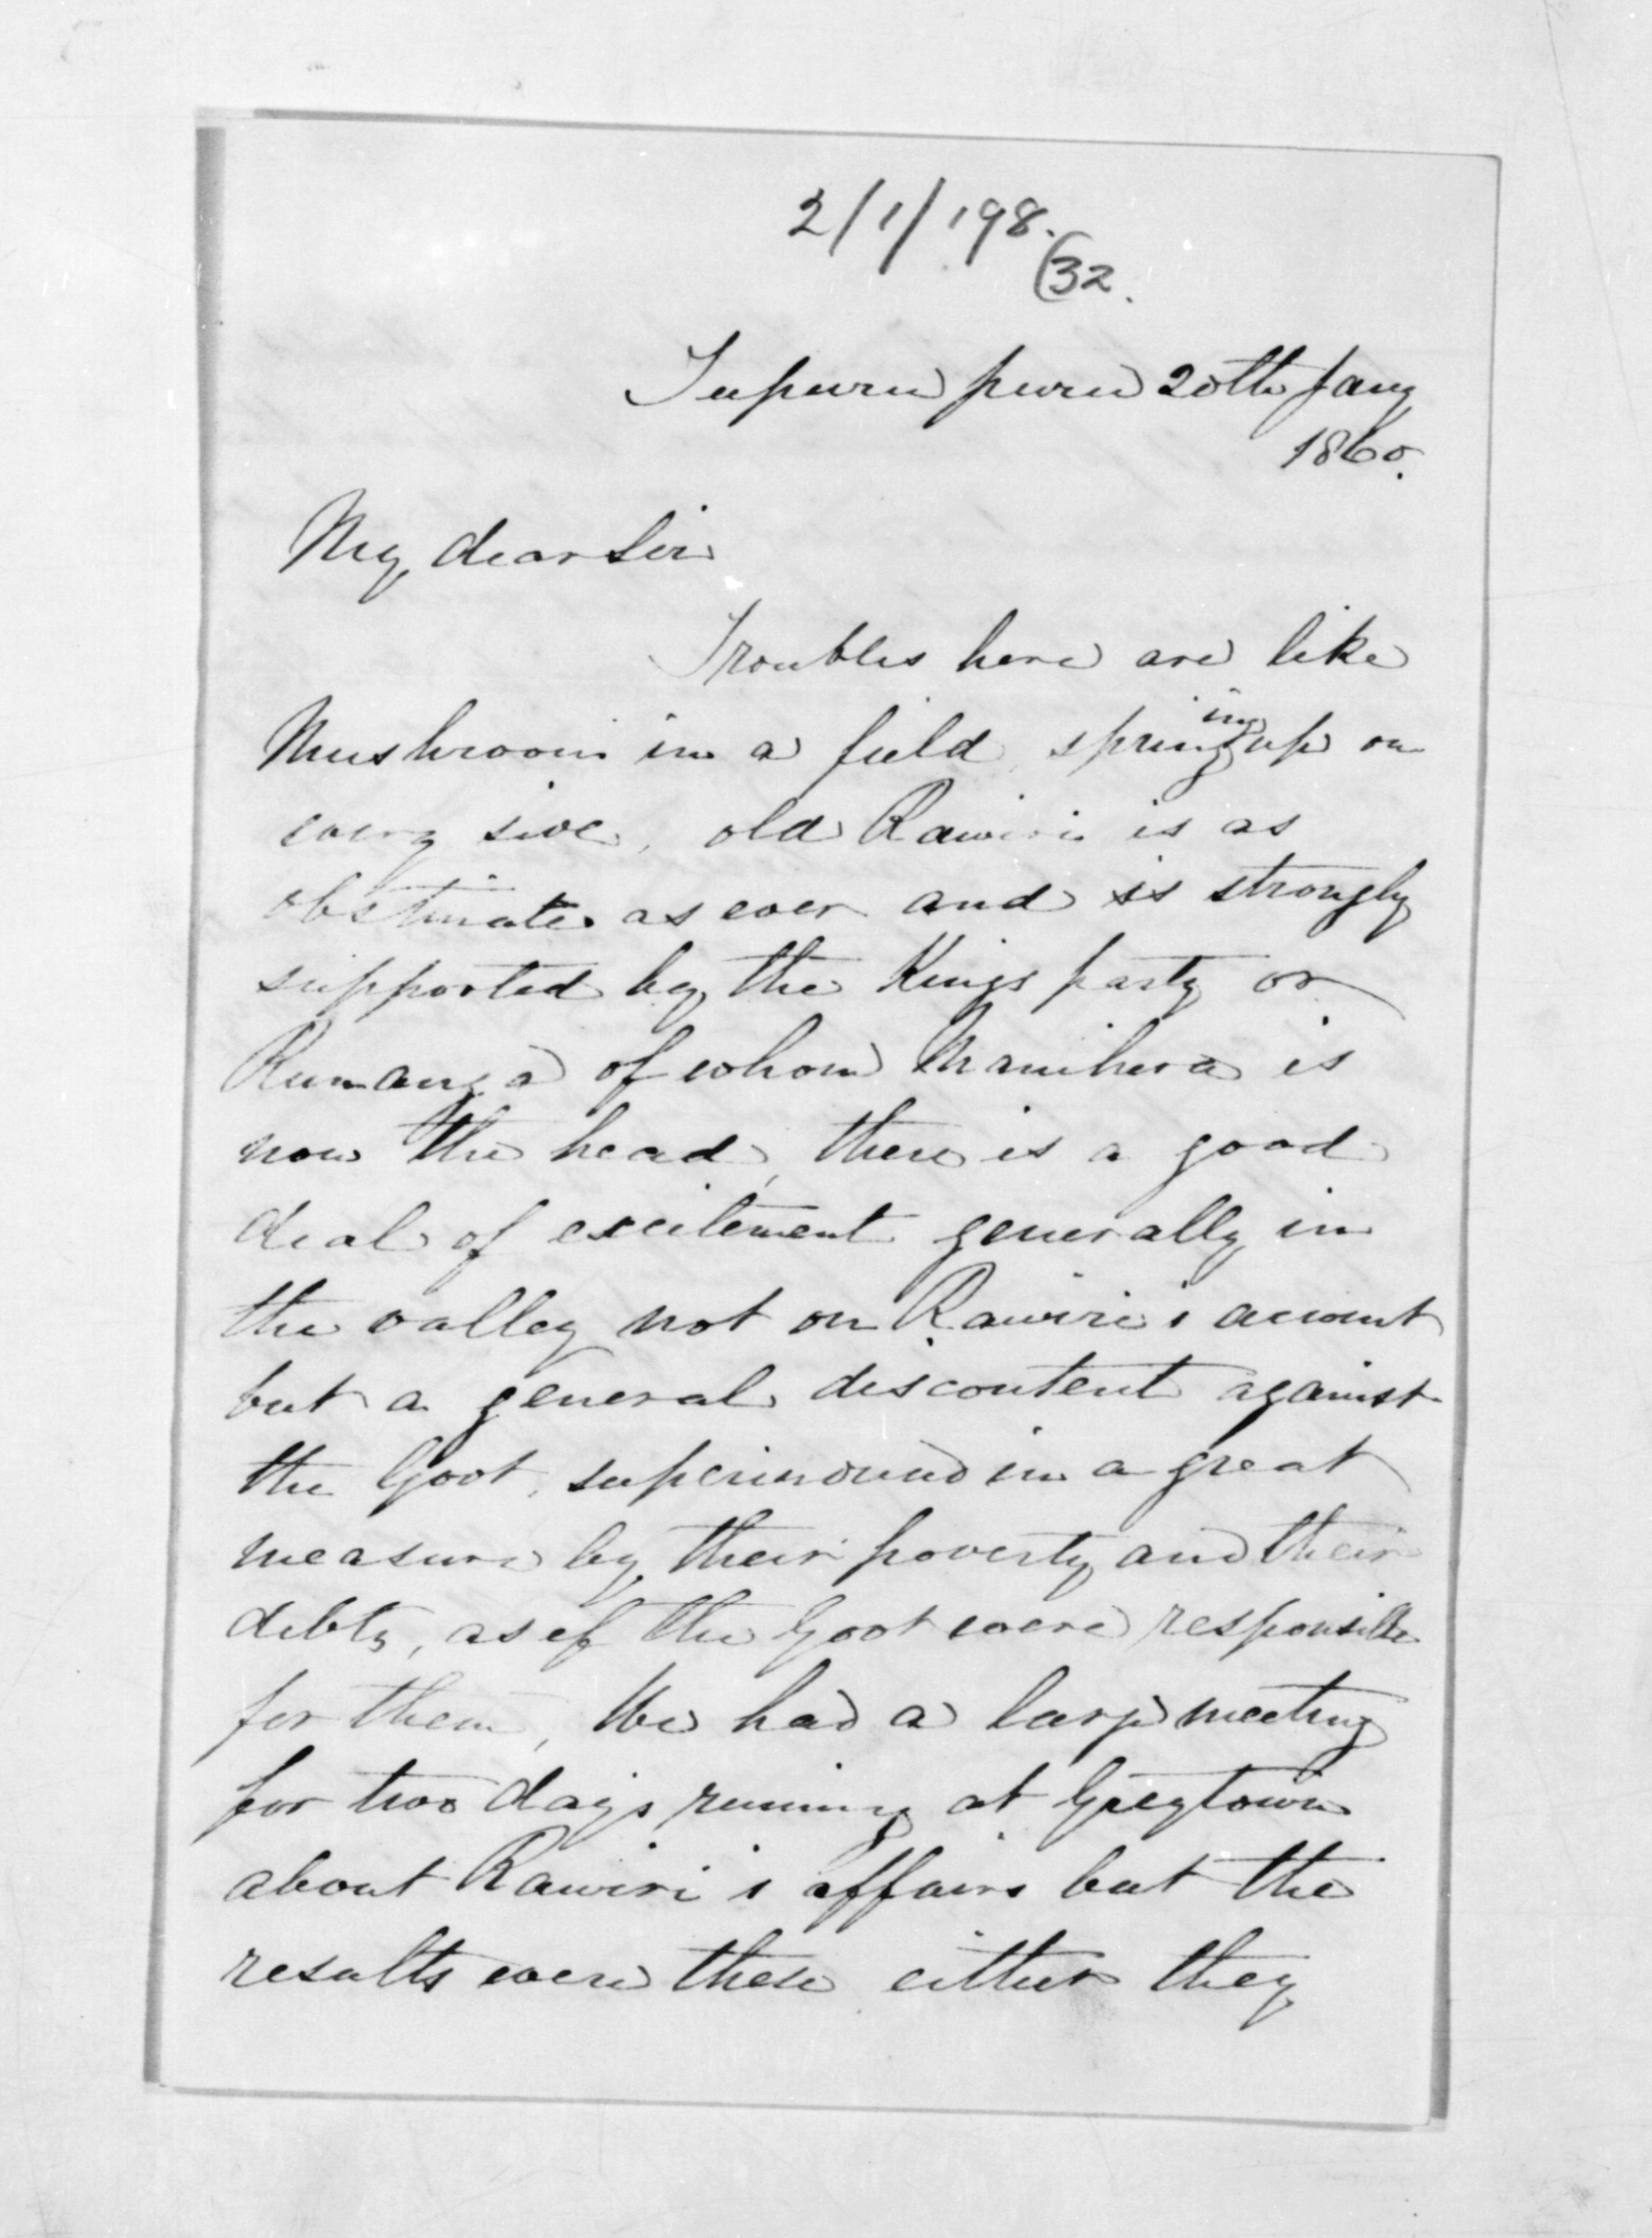 2/1/198.
(32.
Tupurupuru 20th Jany
1860.
My dear Sir
Troubles here are like
Mushrooms in a field, springing up on
every side, old Rawiri is as
obstinate as ever and is strongly
supported by the Kings party or
Runanga of whom Manihera is
now the head, there is a good
deal of excitement generally in
the valley not on Rawiri's account
but a general discontent against
the Govt, superinduced in a great
measure by their poverty and their
debts, as if the Govt were responsible
for them, We had a large meeting
for two days running at Greytown
about Rawiri's affairs but the
results were these either they